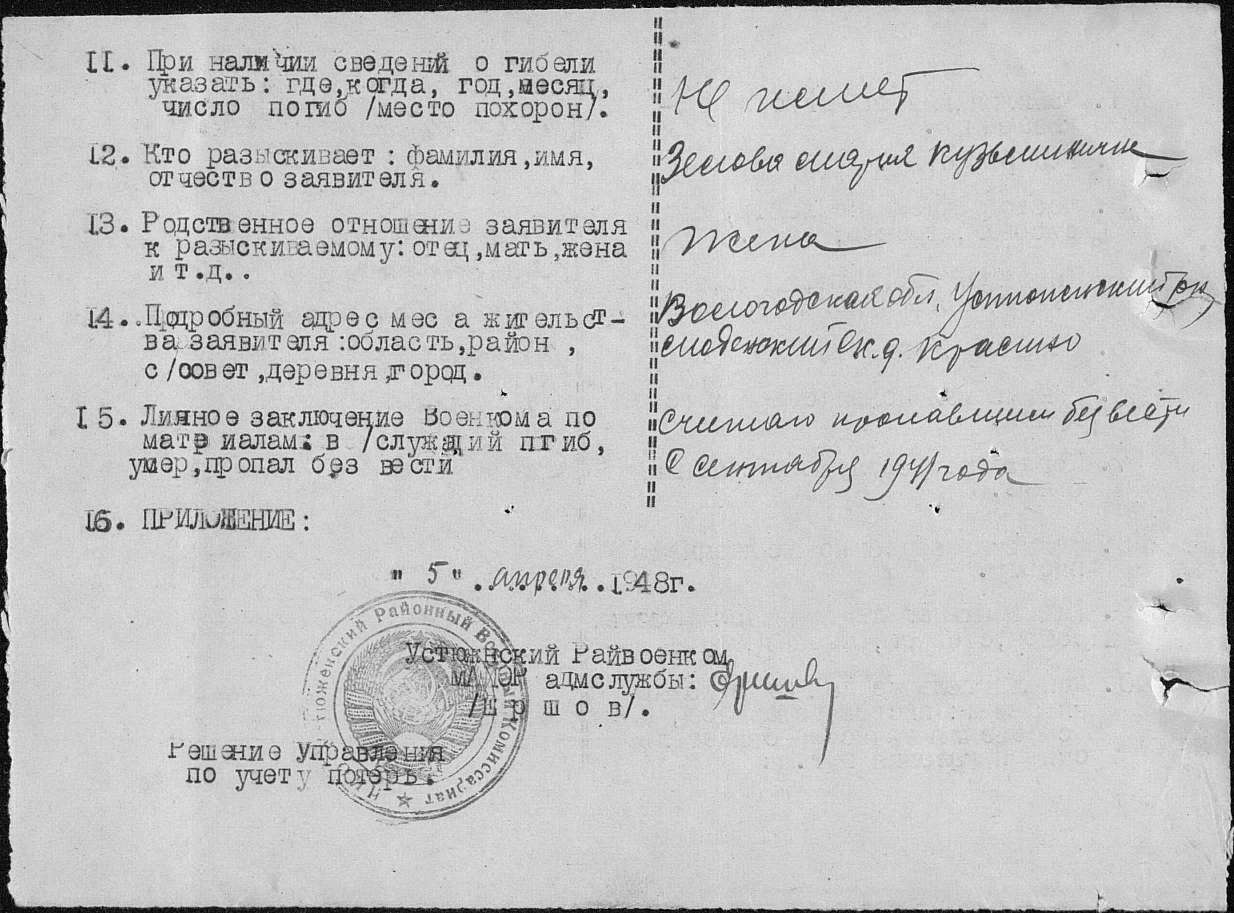 II. При наличии сведений о гибели
указать: где,когда, год,месяц,
число погиб /место похорон/.
Не имеет
I2. Кто разыскивает: фамилия,имя,
отчество заявителя.
Земова Мария Кузьминична
I3. Родственное отношение заявителя
к разыскиваемому:отец,мать,жена
и т.д..
Жена
I4..Подробный адрес мес а жительст-
ва заявителя:область,район ,
с/совет,деревня,город.
Вологодская обл. Устюженский р-н
д. Красино
I5. Личное заключение Военкома по
матер иалам: в /служащий пгиб,
умер,пропал без вести
Считаю пропавшим без вести
с сентября 1941 года
I6. ПРИЛОЖЕНИЕ:
" 5 " . апреля . I948г.
Устюжнский Райвоенком
МАЙОР адмслужбы:
/Е р ш о в/.
Решение Управления
по учету потерь.
Устюженский Районный Военный Комиссариат